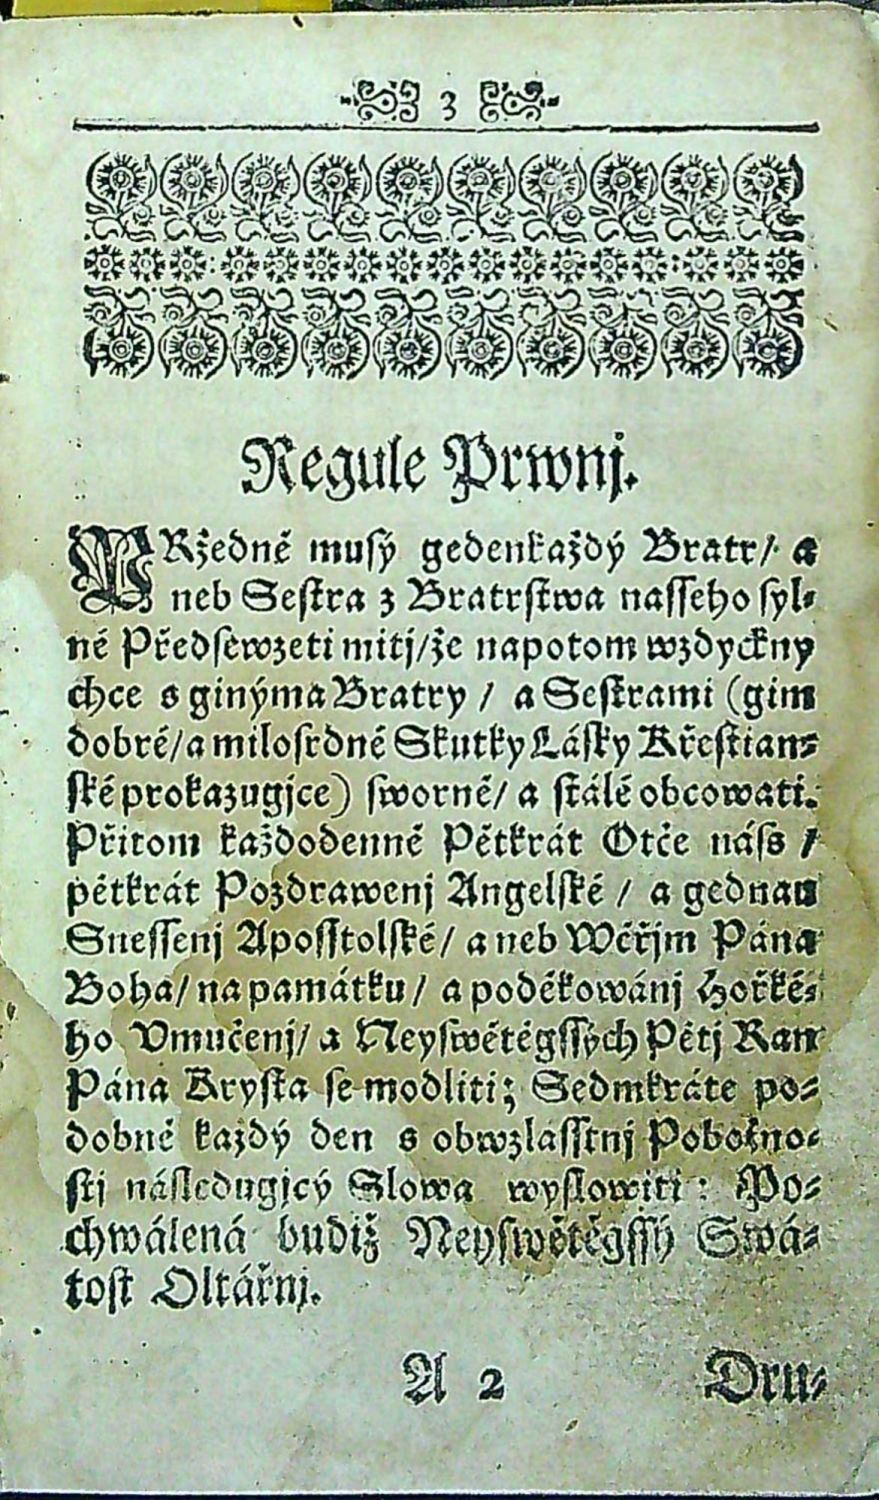 3
Regule Prwnj.
PRžedně musý gedenkaždý Bratr/ a
neb Sestra z Bratrstwa nasseho syl-
né Předsewzeti mitj/že napotom wzdyckny
chce s ginýma Bratry / a Sestrami (gim
dobré/a milosrdné Skutky Lásky Křestian-
ské prokazugjce) sworně/ a stálé obcowati.
Přitom každodenně Pětkrát Otče náss /
pětkrát Pozdrawenj Angelské / a gednau
Snessenj Aposstolské/ a neb Wěřjm Pána
Boha/ na památku/ a poděkowánj Hořké-
ho Vmučenj/ a Neyswětěgssých Pětj Ran
Pána Krysta se modliti; Sedmkráte po-
dobně každý den s obwzlasstnj Pobožno-
stj následugjcý Slowa wyslowiti: Po-
chwálená budiž Neyswětěgssý Swá-
tost Oltářnj.
A 2 Dru-